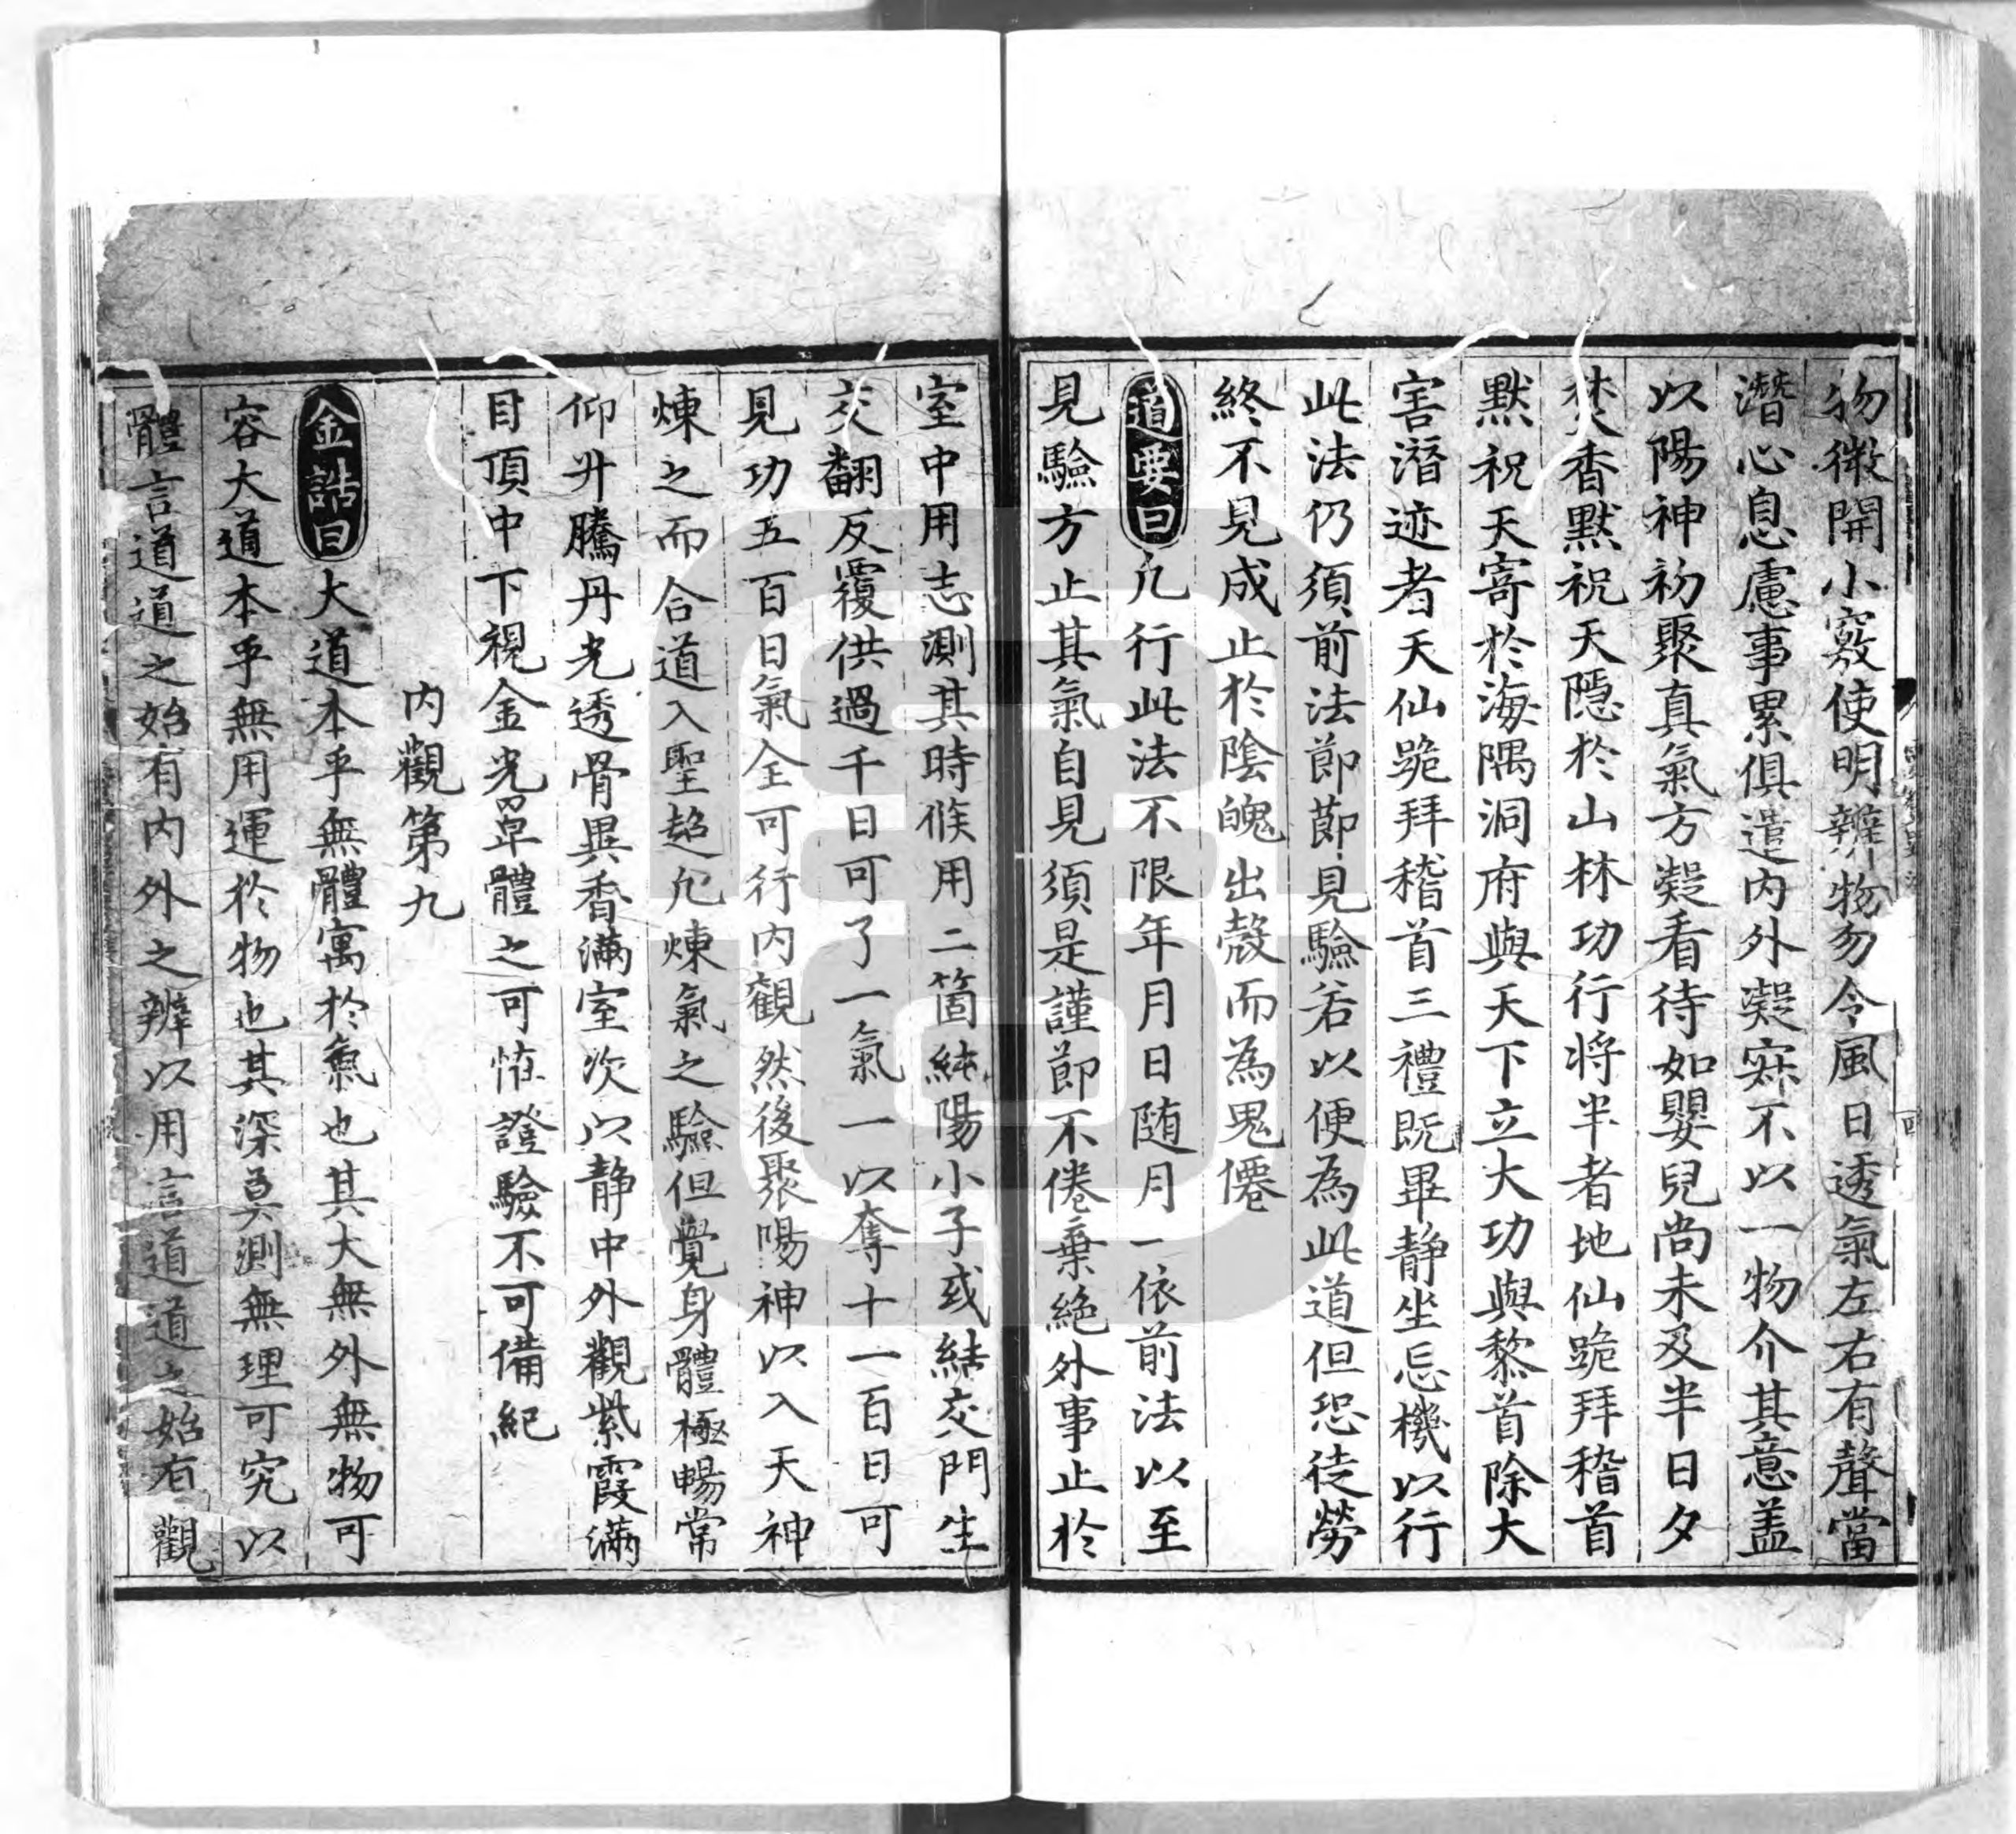 物微開小竅使明辨物勿令風日透氣左右有聲當
潛心息慮事累俱遣内外凝寂不以一物介其意盖
以陽神初聚真氣方凝看待如嬰兒尚未及半日夕
焚香黙祝天隱於山林功行将半者地仙跪拜稽首
黙祝天寄於海隅洞府與天下立大功與黎首除大
害潛迹者天仙跪拜稽首三禮既畢静坐忘機以行
此法仍須前法節節見驗若以便為此道但恐徒勞
終不見成止於陰魄出殼而為鬼僊
道要曰凡行此法不限年月日随月一依前法以至
見驗方止其氣自見須是謹節不倦棄絶外事止於
室中用志測其時候用二箇純陽小子或結交門生
交翻反覆供過千日可了一氣一以奪十一百日可
見功五百日氣全可行内觀然後聚陽神以入天神
煉之而合道入聖超凡煉氣之驗但覺身體極暢常
仰升騰丹光透骨異香滿室次以静中外觀紫霞滿
目頂中下視金光罩體之可恠證驗不可備紀
内觀第九
金誥曰大道本乎無體寓於氣也其大無外無物可
容大道本乎無用運於物也其深莫測無理可究以
體言道道之始有内外之辨以用言道道之始有觀